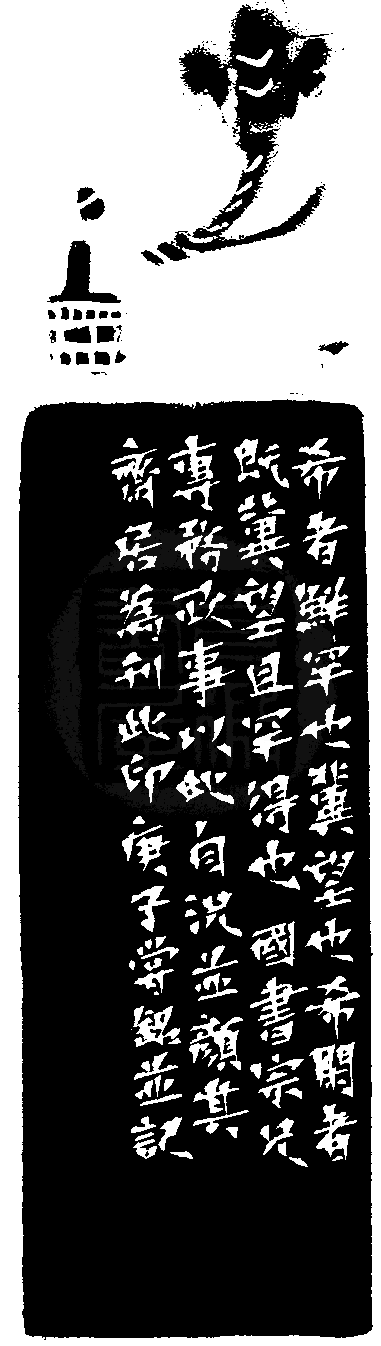 希者鮮罕也冀望也希閒者
既冀望且罕得也 國書宗兄
專務政事以此自況並顏其
齋居為刊此印庚子嘗銘並記